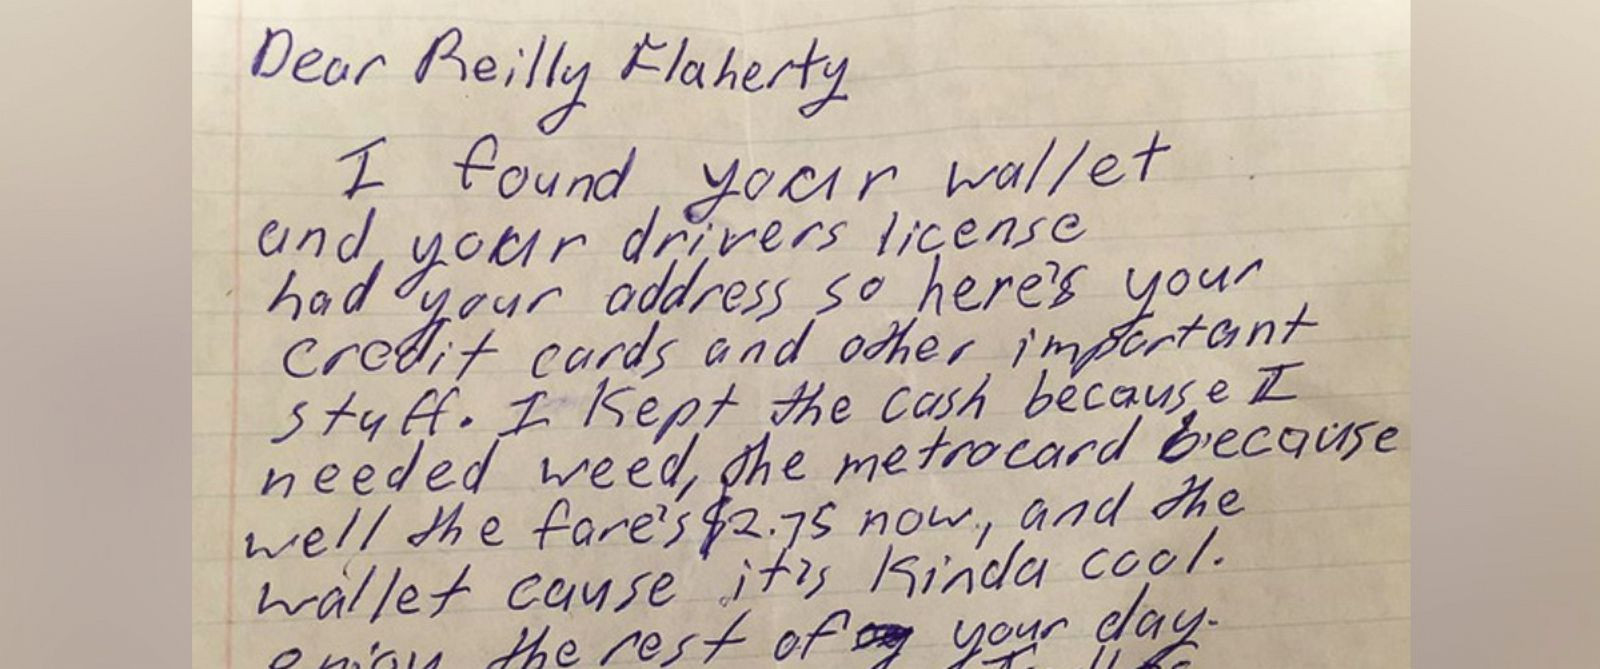 Dear Reilly Flaherty
I found your wallet
and your drivers license
had your address so here's your
credit cards and other important
stuff. I kept the cash because I
needed weed, the metrocard because
well the fare's $2.75 now, and the
wallet cause it's kinda cool.
enjoy the rest of your day.